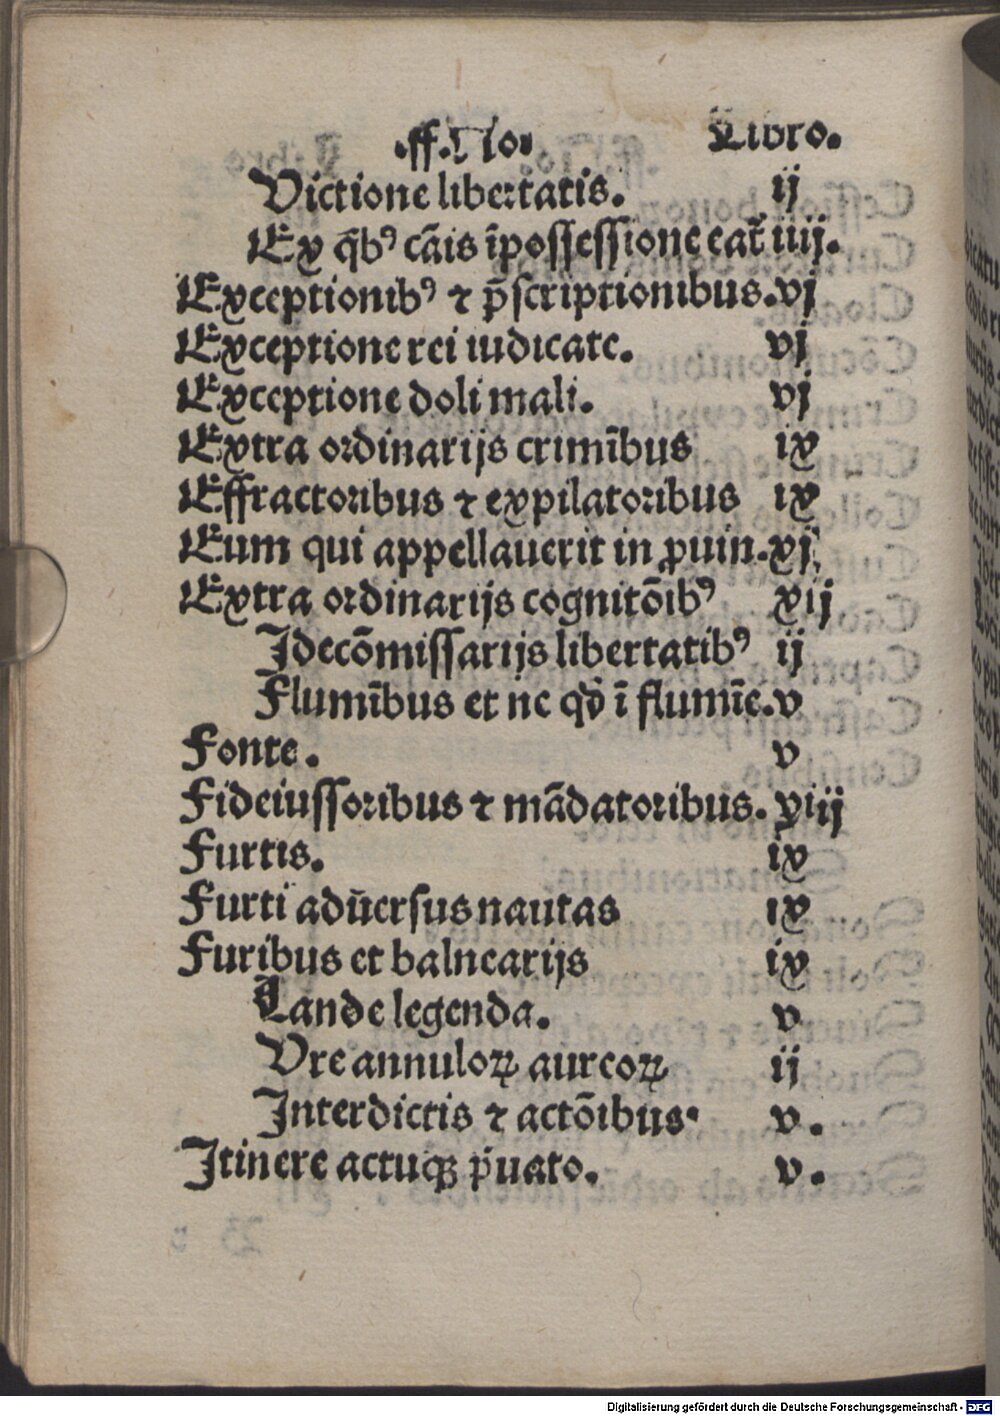 .ff.No. Libro.
Victione libertatis. ij
Ex q̄bꝰ cāis īpossessione eat̄ iiij.
Exceptionibꝰ ⁊ p̄scriptionibus. vj
Exceptione rei iudicate. vj
Exceptione doli mali. vj
Extra ordinarijs crimībus ix
Effractoribus ⁊ expilatoribus ix
Eum qui appellauerit in ꝓuin. xj
Extra ordinarijs cognitōibꝰ xij
Idecōmissarijs libertatibꝰ ij
Flumībus et ne qd̄ ī flumīe. v
Fonte. v
Fideiussoribus ⁊ mādatoribus. xiij
Furtis. ix
Furti adūersus nautas ix
Furibus et balnearijs ix
Lande legenda. v
Vre annuloꝝ aureoꝝ ij
Interdictis ⁊ actōibus. v.
Itinere actuqꝫ p̄uato. v.
Digitalisierung gefördert durch die Deutsche Forschungsgemeinschaft - DFG